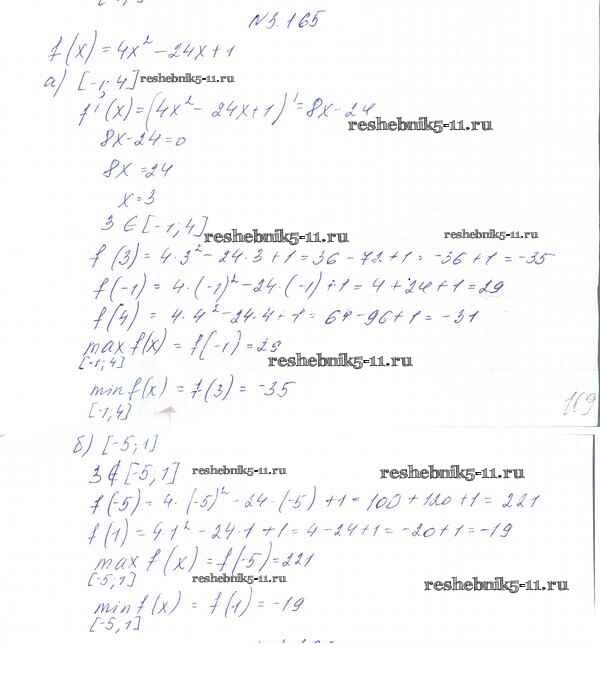 N 3.165
f(x) = 4x² - 24x + 1
а) [-1; 4] reshebnik5-11.ru
f'(x) = (4x² - 24x + 1)' = 8x - 24
reshebnik5-11.ru
8x - 24 = 0
8x = 24
x = 3
3 ∈ [-1; 4]
reshebnik5-11.ru reshebnik5-11.ru
f(3) = 4·3² - 24·3 + 1 = 36 - 72 + 1 = -36 + 1 = -35
f(-1) = 4·(-1)² - 24·(-1) + 1 = 4 + 24 + 1 = 29
f(4) = 4·4² - 24·4 + 1 = 64 - 96 + 1 = -31
max f(x) = f(-1) = 29
[-1; 4] reshebnik5-11.ru
min f(x) = f(3) = -35
[-1, 4] 169
б) [-5; 1]
3 ∉ [-5, 1] reshebnik5-11.ru reshebnik5-11.ru
f(-5) = 4·(-5)² - 24·(-5) + 1 = 100 + 120 + 1 = 221
f(1) = 4·1² - 24·1 + 1 = 4 - 24 + 1 = -20 + 1 = -19
max f(x) = f(-5) = 221
[-5; 1] reshebnik5-11.ru reshebnik5-11.ru
min f(x) = f(1) = -19
[-5, 1]